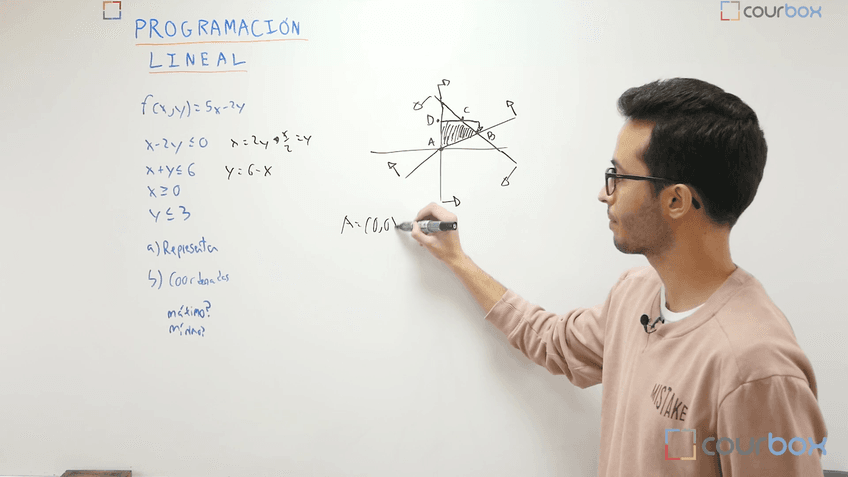 PROGRAMACIÓN
LINEAL
f(x,y)=5x-2y
x-2y≤0 x=2y → x/2=y
x+y≤6 y=6-x
x≥0
y≤3
a) Representa
b) Coordenadas
máximo?
mínimo?
D
C
A
B
A=(0,0)
courbox
MISTAKE
courbox